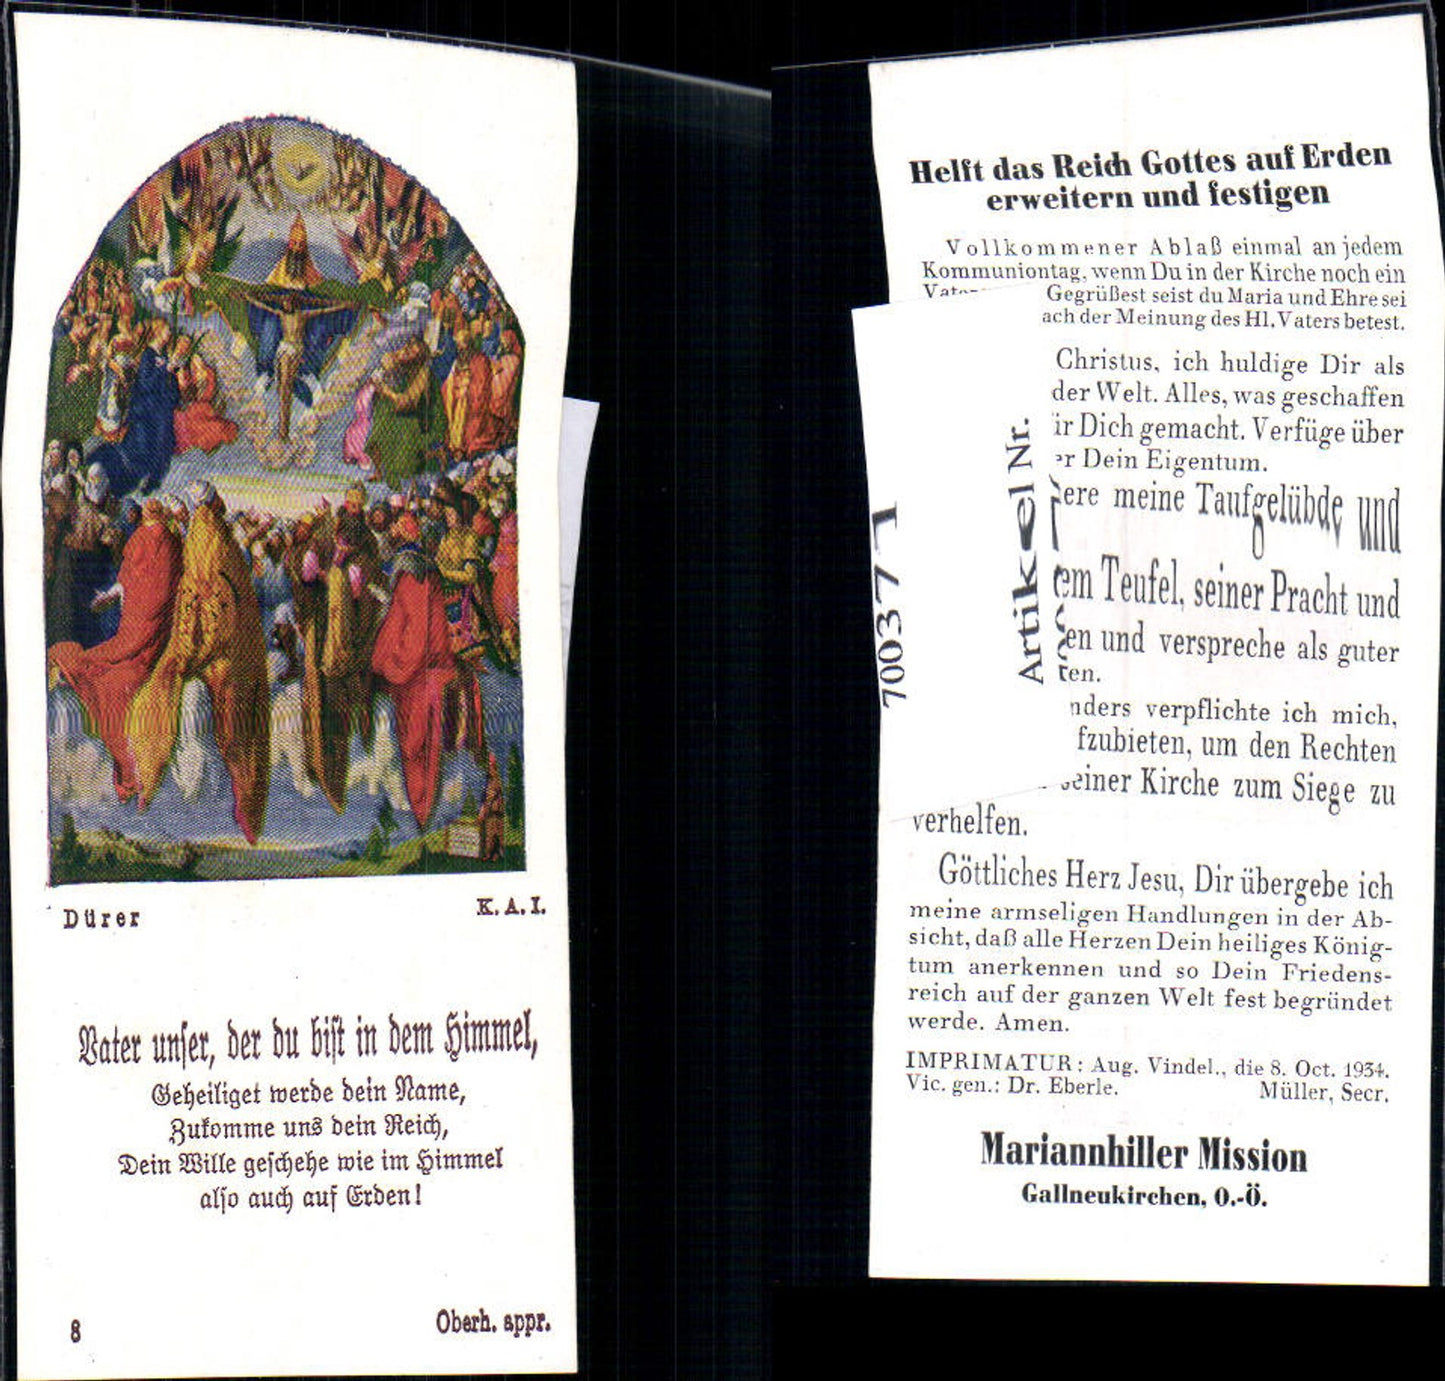 Dürer
K. A. I.
Vater unser, der du bist in dem Himmel,
Geheiliget werde dein Name,
Zukomme uns dein Reich,
Dein Wille geschehe wie im Himmel
also auch auf Erden!
8
Oberh. appr.
Helft das Reich Gottes auf Erden
erweitern und festigen
Vollkommener Ablaß einmal an jedem
Kommuniontag, wenn Du in der Kirche noch ein
Gegrüßest seist du Maria und Ehre sei
ach der Meinung des Hl. Vaters betest.
Christus, ich huldige Dir als
der Welt. Alles, was geschaffen
ir Dich gemacht. Verfüge über
r Dein Eigentum.
ere meine Taufgelübde und
em Teufel, seiner Pracht und
en und verspreche als guter
ten.
nders verpflichte ich mich,
fzubieten, um den Rechten
seiner Kirche zum Siege zu
verhelfen.
Göttliches Herz Jesu, Dir übergebe ich
meine armseligen Handlungen in der Ab-
sicht, daß alle Herzen Dein heiliges König-
tum anerkennen und so Dein Friedens-
reich auf der ganzen Welt fest begründet
werde. Amen.
IMPRIMATUR: Aug. Vindel., die 8. Oct. 1934.
Vic. gen.: Dr. Eberle. Müller, Secr.
Mariannhiller Mission
Gallneukirchen, O.-Ö.
Artikel Nr.
700371